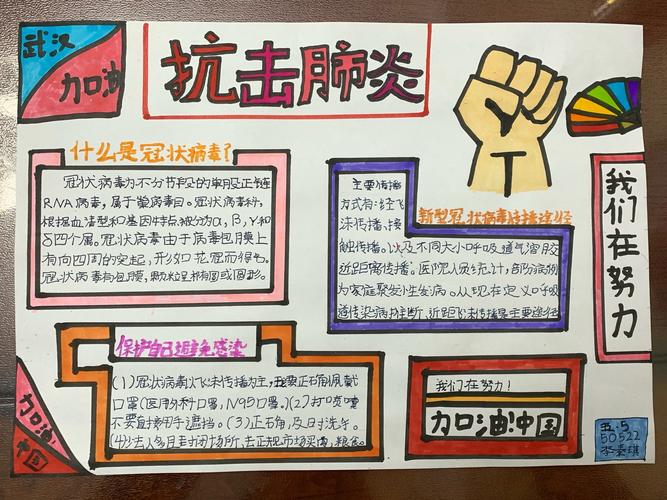 武汉
加油
抗击肺炎
什么是冠状病毒?
冠状病毒为不分节段的单股正链
RNA病毒,属于巢病毒目。冠状病毒科,
根据血清型和基因特点被分为α,β,γ和
δ四个属。冠状病毒由于病毒包膜上
有向四周的突起,形如花冠而得名。
冠状病毒有包膜,颗粒呈椭圆或圆形。
主要传播
方式有:经飞
沫传播、接
触传播。以及不同大小呼吸道气溶胶
近距离传播。医院人员统计,部分病例
为家庭聚发小生发病。从现在定义呼吸
道传染病判断,近距飞沫传播是主要途径
新型冠状病毒传播途径
我们在努力
保护自己避免感染
(1)冠状病毒以飞沫传播为主,要正确佩戴
口罩(医用外科口罩,N95口罩。)(2)打喷嚏
不要直接用手遮挡。(3)正确,及时洗手。
(4)少去人多且封闭场所,去正规市场买肉,粮食。
我们在努力!
加油!中国
加油!
中国
五.5
50522